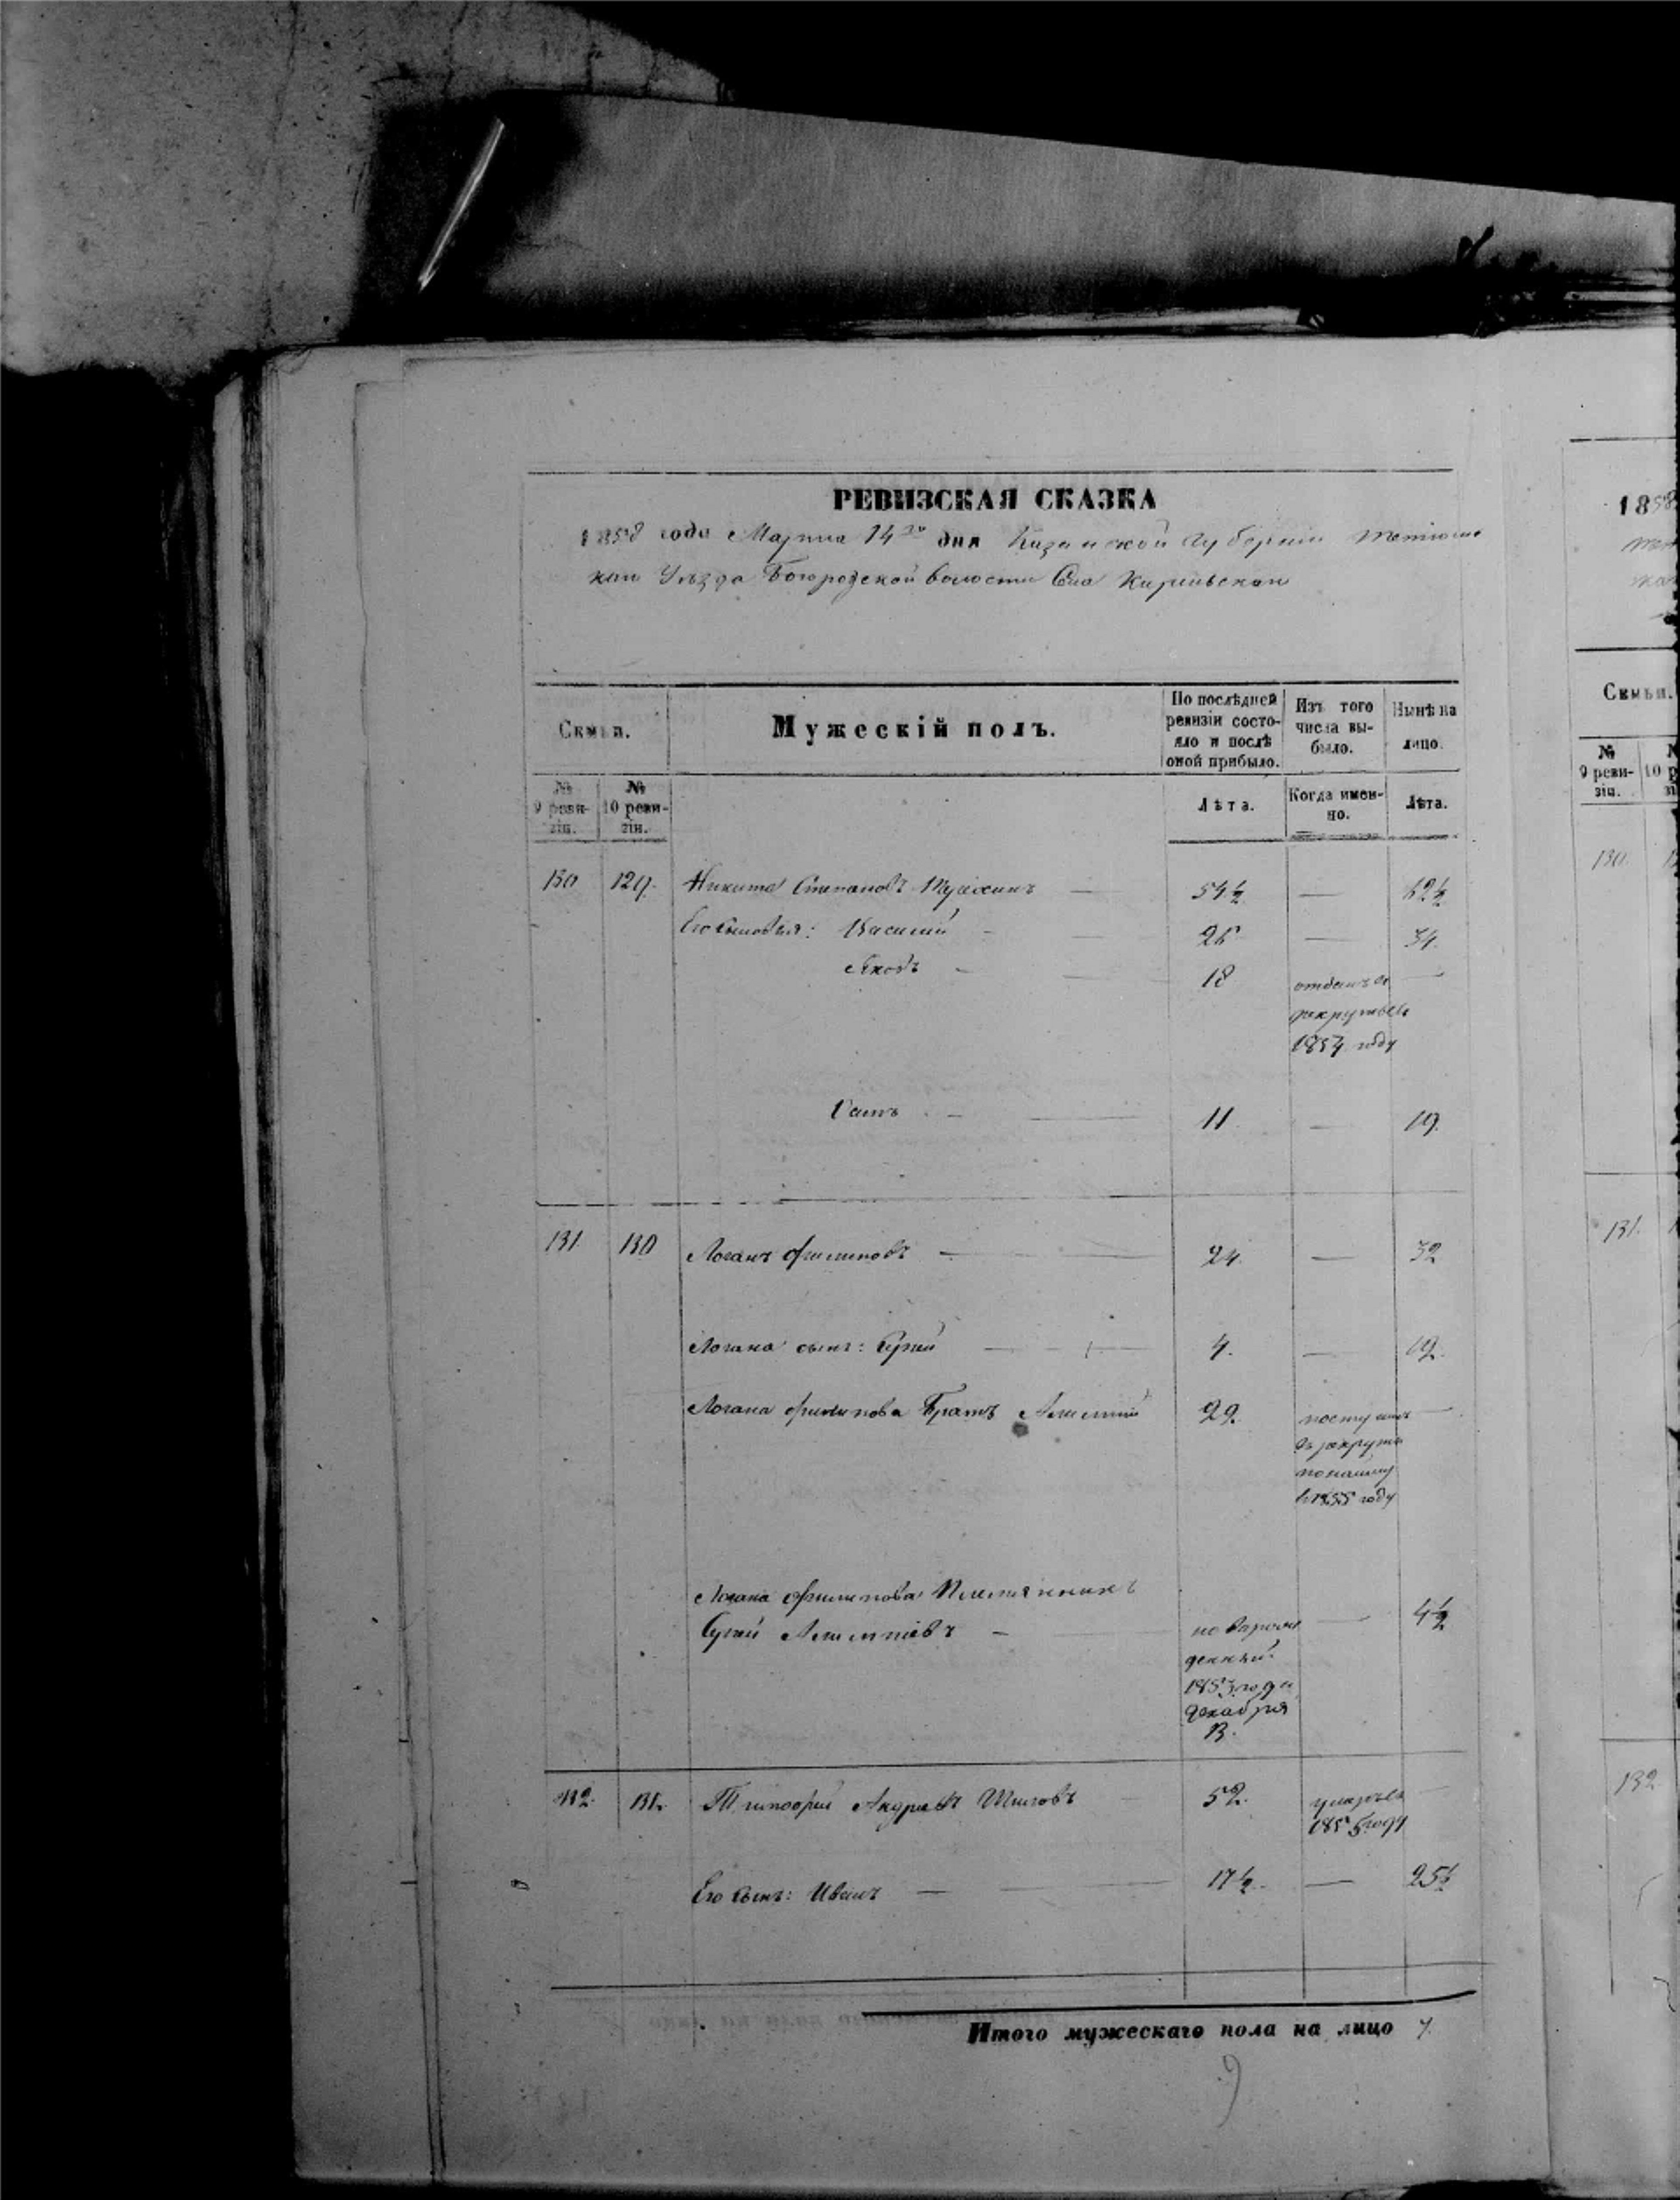 РЕВИЗСКАЯ СКАЗКА
1858 года Марта 14го дня Казанской Губерніи Тетюшс
каго Уѣзда Богородской волости Села
Семьи.
Мужескій полъ.
По послѣдней ревизіи состояло и послѣ оной прибыло.
Изъ того числа выбыло.
Нынѣ на лицо.
№ 9 ревизіи.
№ 10 ревизіи.
Лѣта.
Когда именно.
Лѣта.
130 129. Никита Степановъ — 54½ — 62½
Его сыновья: Василій — 26 — 34.
Яковъ — 18 отданъ въ —
рекруты въ
1854 году
— 11 — 19.
131. 130 Логинъ Филиповъ — 24. — 32
Логина сынъ: Сергей — 4. — 12.
Логина Филипова Братъ 22. поступилъ —
въ рекруты
по найму
въ 1855 году
Логина Филипова Племянникъ
Сергей — новорож — 4½
денный
1853 года
декабря
13.
132. 131. Тимофей Андреевъ Шиловъ — 52. умеръ въ —
1855 году
Его сынъ: Иванъ — 17½ — 25½
Итого мужескаго пола на лицо 7.
1858
Семьи.
№ 9 ревизіи.
130.
131.
132.